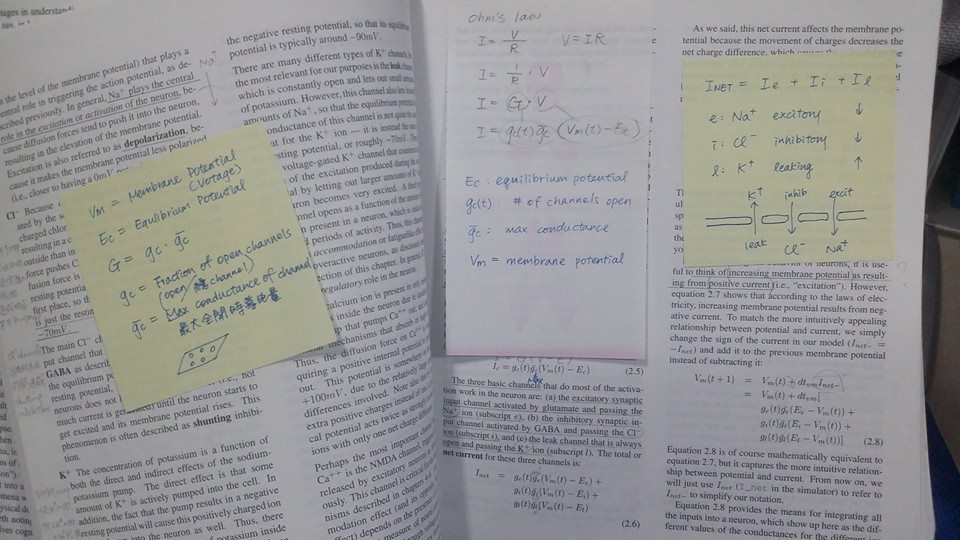 tages in understandi
the level of the membrane potential) that plays a
central role in triggering the action potential, as de-
scribed previously. In general, Na⁺ plays the central
role in the excitation or activation of the neuron, be-
cause diffusion forces tend to push it into the neuron,
resulting in the elevation of the membrane potential.
Excitation is also referred to as depolarization, be-
cause it makes the membrane potential less polarized
(i.e., closer to having a 0mV
Na⁺
Vm = Membrane Potential
(Votage)
Ec = Equilibrium Potential
G = gc · g̅c
gc = Fraction of open channels
(open channel)
g̅c = Max conductance of channel
Cl⁻ Because
ated by the
charged chlor
resulting in a
outside than in
force pushes C
fusion force is
resting potential
first place, so
is just the restin
-70mV.
The main Cl⁻ ch
put channel that
GABA as describ
the equilibrium p
resting potential,
neurons does not
much current is generated) until the neuron starts to
get excited and its membrane potential rises. This
phenomenon is often described as shunting inhibi-
tion.
K⁺ The concentration of potassium is a function of
both the direct and indirect effects of the sodium-
potassium pump. The direct effect is that some
amount of K⁺ is actively pumped into the cell. In
addition, the fact that the pump results in a negative
resting potential will cause this positively charged ion
into the neuron as well. Thus, there
of potassium inside
the negative resting potential, so that its equilibrium
potential is typically around −90mV.
There are many different types of K⁺ channels,
the most relevant for our purposes is the leak channel
which is constantly open and lets out small amounts
of potassium. However, this channel also lets
amounts of Na⁺, so that the equilibrium potential
conductance of this channel is not quite the
at for the K⁺ ion — it is instead the
resting potential, or roughly −70mV.
voltage-gated K⁺ channel that counteracts
of the excitation produced during the
by letting out larger amounts of K⁺
ron becomes very excited.
nnel opens as a function of the amount
present in a neuron, which is
periods of activity. Thus, this channel
accommodation or fatigue
overactive neurons, as discussed
ection of this chapter. In general
regulatory role in the neuron.
calcium ion is present in only
inside the neuron due to
that pumps Ca⁺⁺ out,
mechanisms that absorb or
Thus, the diffusion force on Ca⁺⁺
quiring a positive internal potential
out. This potential is somewhere
+100mV, due to the relatively large
differences involved. Note also that
extra positive charges instead of
cal potential acts twice as strongly
ions with only one net charge
Perhaps the most important
Ca⁺⁺ is the NMDA channel,
released by excitatory neurons
ously. This channel is critical
nisms described in chapters
modation effect (and its opposite
effect) depends on the presence
ohm's law
I = V/R V = IR
I = 1/R · V
I = G · V
I = gc(t) g̅c (Vm(t) − Ec)
Ec : equilibrium potential
gc(t) : # of channels open
g̅c : max conductance
Vm = membrane potential
Ic = gc(t)g̅c(Vm(t) − Ec) (2.5)
The three basic channels that do most of the activa-
tion work in the neuron are: (a) the excitatory synaptic
input channel activated by glutamate and passing the
Na⁺ ion (subscript e), (b) the inhibitory synaptic in-
put channel activated by GABA and passing the Cl⁻
ion (subscript i), and (c) the leak channel that is always
open and passing the K⁺ ion (subscript l). The total or
net current for these three channels is:
Inet = ge(t)g̅e(Vm(t) − Ee) +
gi(t)g̅i(Vm(t) − Ei) +
gl(t)g̅l(Vm(t) − El)
(2.6)
As we said, this net current affects the membrane po-
tential because the movement of charges decreases the
net charge difference, which causes the
INET = Ie + Ii + Il
e : Na⁺ excitory ↓
i : Cl⁻ inhibitory ↓
l : K⁺ leaking ↑
K⁺ inhib excit
leak Cl⁻ Na⁺
behavior of neurons, it is use-
ful to think of increasing membrane potential as result-
ing from positive current (i.e., “excitation”). However,
equation 2.7 shows that according to the laws of elec-
tricity, increasing membrane potential results from neg-
ative current. To match the more intuitively appealing
relationship between potential and current, we simply
change the sign of the current in our model (Inet− =
−Inet) and add it to the previous membrane potential
instead of subtracting it:
Vm(t + 1) = Vm(t) + dtvm Inet−
= Vm(t) + dtvm[
ge(t)g̅e(Ee − Vm(t)) +
gi(t)g̅i(Ei − Vm(t)) +
gl(t)g̅l(El − Vm(t))] (2.8)
Equation 2.8 is of course mathematically equivalent to
equation 2.7, but it captures the more intuitive relation-
ship between potential and current. From now on, we
will just use Inet (I_net in the simulator) to refer to
Inet− to simplify our notation.
Equation 2.8 provides the means for integrating all
the inputs into a neuron, which show up here as the dif-
ferent values of the conductances for the different ion